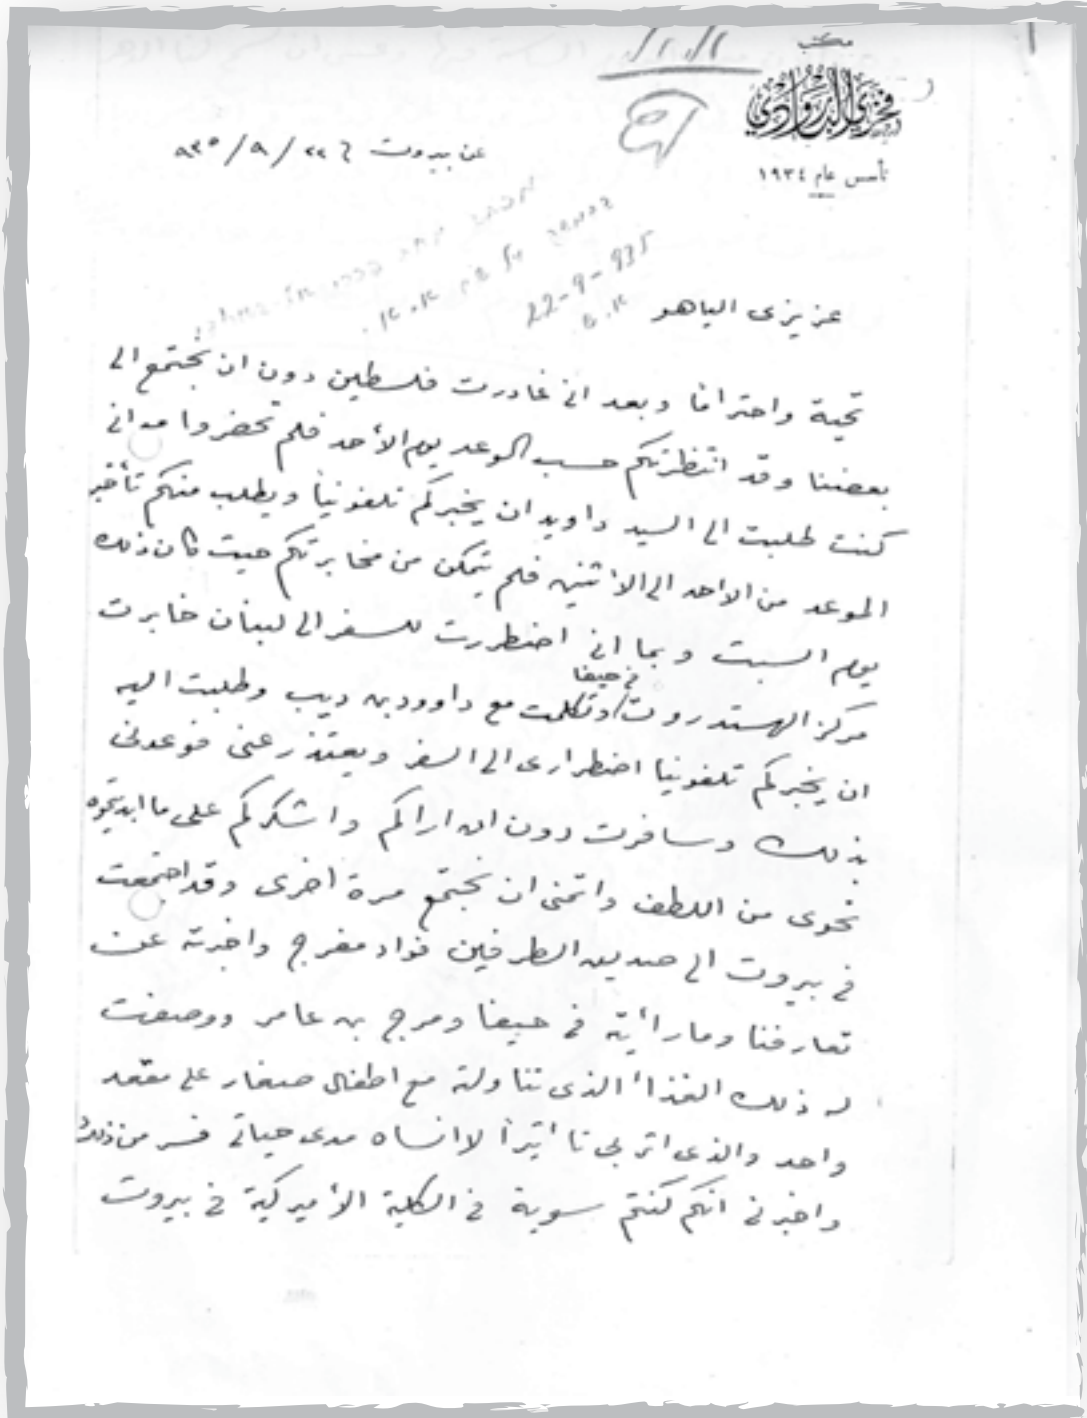 مكتب
فخري البارودي
تأسس عام ١٩٣٤
عن بيروت في ٢٢ / ٩ / ٩٣٥
22-9-935
عزيزي الياهو
تحية واحتراما وبعد اني غادرت فلسطين دون ان نجتمع الى
بعضنا وقد انتظرتكم حسب الوعد يوم الأحد فلم تحضروا مع اني
كنت طلبت الى السيد داويد ان يخبركم تلفونيا ويطلب منكم تأخير
الموعد من الاحد الى الاثنين فلم يتمكن من مخابرتكم حيث كان ذلك
يوم السبت وبما اني اضطررت للسفر الى لبنان خابرت
مركز الهستدروت في حيفا وتكلمت مع داوود بن ديب وطلبت اليه
ان يخبركم تلفونيا اضطراري الى السفر ويعتذر عني فوعدني
بذلك وسافرت دون ان اراكم واشكركم على ما ابديتموه
نحوي من اللطف واتمنى ان نجتمع مرة اخرى وقد اجتمعت
في بيروت الى صديق الطرفين فواد مفرج واخبرته عن
تعارفنا وما رأيته في حيفا ومرج بن عامر ووصفت
له ذلك الغذاء الذي تناولته مع اطفال صغار على مقعد
واحد والذي اثر بي تاثيرا لا انساه مدى حياتي فسر من ذلك
واخبرني انكم كنتم سوية في الكلية الأميركية في بيروت